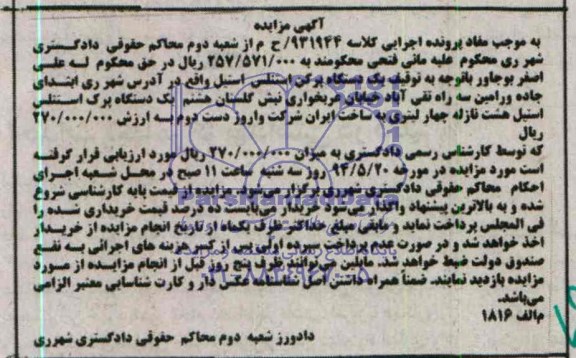 آگهی مزایده
به موجب مفاد پرونده اجرایی کلاسه ۹۳۱۹۴۴/ ح م از شعبه دوم محاکم حقوقی دادگستری
شهر ری محکوم علیه مانی فتحی محکومند به ۲۵۷/۵۷۱/۰۰۰ ریال در حق محکوم له علی
اصغر بوجاور باتوجه به توقیف یک دستگاه پرکن استنلس استیل واقع در آدرس شهر ری ابتدای
جاده ورامین سه راه تقی آباد خیابان هریخواری نبش گلستان هشتم یک دستگاه پرک استنلس
استیل هشت نازله چهار لیتری به ساخت ایران شرکت واروژ دست دوم به ارزش ۲۷۰/۰۰۰/۰۰۰
ریال
که توسط کارشناس رسمی دادگستری به میزان ۲۷۰/۰۰۰/۰۰۰ ریال مورد ارزیابی قرار گرفته
است مورد مزایده در مورخه ۹۴/۵/۲۰ روز سه شنبه ساعت ۱۱ صبح در محل شعبه اجرای
احکام محاکم حقوقی دادگستری شهرری برگزار می‌شود. مزایده از قیمت پایه کارشناسی شروع
شده و به بالاترین پیشنهاد واگذار می‌شود خریدار می‌بایست ده درصد قیمت خریداری شده را
فی المجلس پرداخت نماید و مابقی مبلغ حداکثر ظرف یکماه از تاریخ انجام مزایده از خریدار
اخذ خواهد شد و در صورت عدم پرداخت سپرده اولی پس از کسر هزینه های اجرائی به نفع
صندوق دولت ضبط خواهد شد. مایلین می‌توانند ظرف پنج روز قبل از انجام مزایده از مورد
مزایده بازدید نمایند. ضمناً همراه داشتن اصل شناسنامه عکس دار و کارت شناسایی معتبر الزامی
می‌باشد.
م‌الف ۱۸۱۶
دادورز شعبه دوم محاکم حقوقی دادگستری شهرری
ParsNamadData